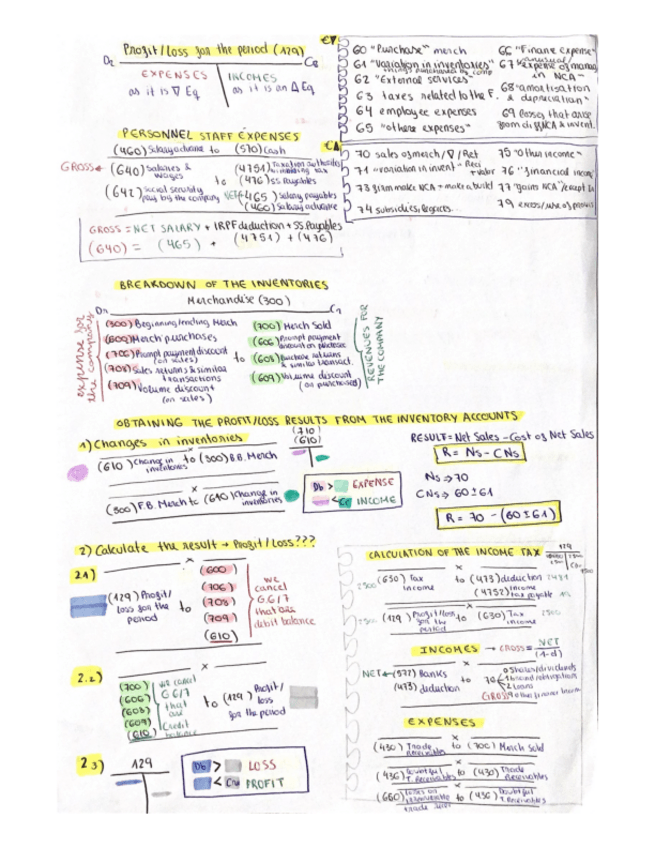 Profit/loss for the period (129)
EXPENSES
as it is ▽ Eq
INCOMES
as it is an Δ Eq
60 "Purchase" merch
61 "Variation in inventories"
62 "External services"
63 taxes related to the F.
64 employee expenses
65 "others expenses"
66 "Finance expense"
in NCA"
68 "amortisation
& depreciation"
69 losses that arise
70 sales of merch / ▽ / Ret
71 "variation in invent"
73 firm make NCA + make a build
74 subsidies, legacies..
75 "Other income"
76 "financial income"
PERSONNEL STAFF EXPENSES
(460) Salary advance to (570) Cash
GROSS ← (640) Salaries & wages
to
(642) Social security pay by the company
(4751) Taxation authorities witholding tax
(476) SS Payables
NET ← (465) Salary payables
(460) Salary advance
GROSS = NET SALARY + IRPF deduction + SS.Payables
(640) = (465) + (4751) + (476)
BREAKDOWN OF THE INVENTORIES
Merchandise (300)
expense for the company
(300) Beginning/ending Merch
(600) Merch purchases
(706) Prompt payment discount (on sales)
(708) Sales returns & similar transactions
(709) Volume discount (on sales)
to
(700) Merch Sold
(606) Prompt payment discount on purchase
(608) Purchase returns & similar transact.
(609) Volume discount (on purchases)
REVENUES FOR THE COMPANY
OBTAINING THE PROFIT/LOSS RESULTS FROM THE INVENTORY ACCOUNTS
1) Changes in inventories
(610) Change in inventories to (300) B.B. Merch
(300) F.B. Merch to (610) Change in inventories
(710)
(610)
Db > EXPENSE
< Cr INCOME
RESULT = Net Sales - Cost of Net Sales
R = NS - CNS
NS → 70
CNS → 60 ± 61
R = 70 - (60 ± 61)
2) Calculate the result → Profit / Loss???
2.1)
(129) Profit/ loss for the period to
(600)
(706)
(708)
(709)
(610)
we cancel G.6/7 that are debit balance
2.2)
(700)
(606)
(608)
(609)
(610)
we cancel G 6/7 that are Credit balance
to (129) Profit/ loss for the period
2.3)
129
Db > LOSS
< PROFIT
CALCULATION OF THE INCOME TAX
129
(630) Tax income to (473) deduction
(4752) tax payable
(129) Profit/loss for the period to (630) Tax income
INCOMES → GROSS = NET / (1-d)
NET ← (572) Banks
(473) deduction
to
0 Shares/dividends
2 Loans
EXPENSES
(430) Trade receivables to (700) Merch Sold
(436) Doubtful T. Receivables to (430) Trade Receivables
to (436) Doubtful T. Receivables